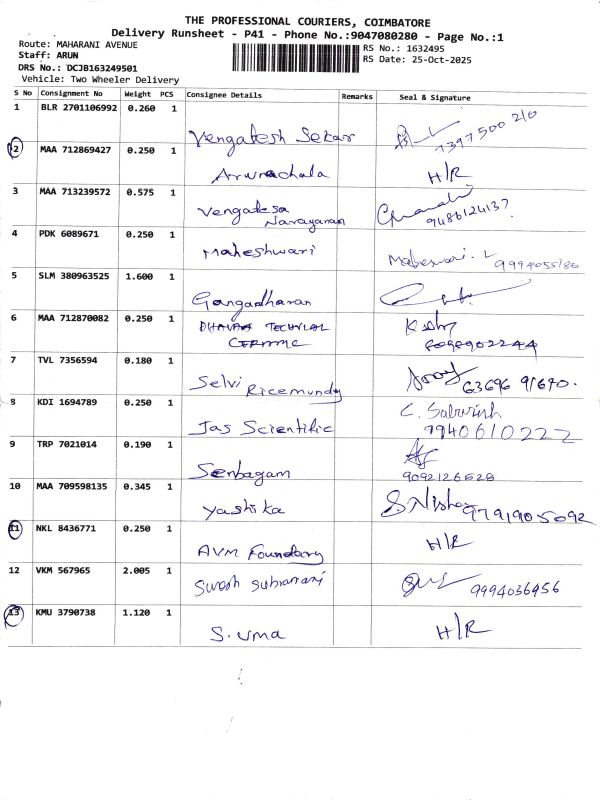 THE PROFESSIONAL COURIERS, COIMBATORE
Delivery Runsheet - P41 - Phone No.:9047080280 - Page No.:1
Route: MAHARANI AVENUE
RS No.: 1632495
Staff: ARUN
RS Date: 25-Oct-2025
DRS No.: DCJB163249501
Vehicle: Two Wheeler Delivery
S No Consignment No Weight PCS Consignee Details Remarks Seal & Signature
1 BLR 2701106992 0.260 1
Vengatesh Sekar 7397500210
2 MAA 712869427 0.250 1
Arunachala H/R
3 MAA 713239572 0.575 1
Vengatesa
Narayanan 9486124137
4 PDK 6089671 0.250 1
Maheshwari Maheswari. L 9994055180
5 SLM 380963525 1.600 1
Gangadharan
6 MAA 712870082 0.250 1
7 TVL 7356594 0.180 1
Selvi Ricemundy 63696 91690.
8 KDI 1694789 0.250 1
Jas Scientific 9940610222
9 TRP 7021014 0.190 1
Senbagam 9092126828
10 MAA 709598135 0.345 1
Yashika 9791905092
11 NKL 8436771 0.250 1
AVM Foundary H/R
12 VKM 567965 2.005 1
Suresh 9994036956
13 KMU 3790738 1.120 1
S. Uma H/R